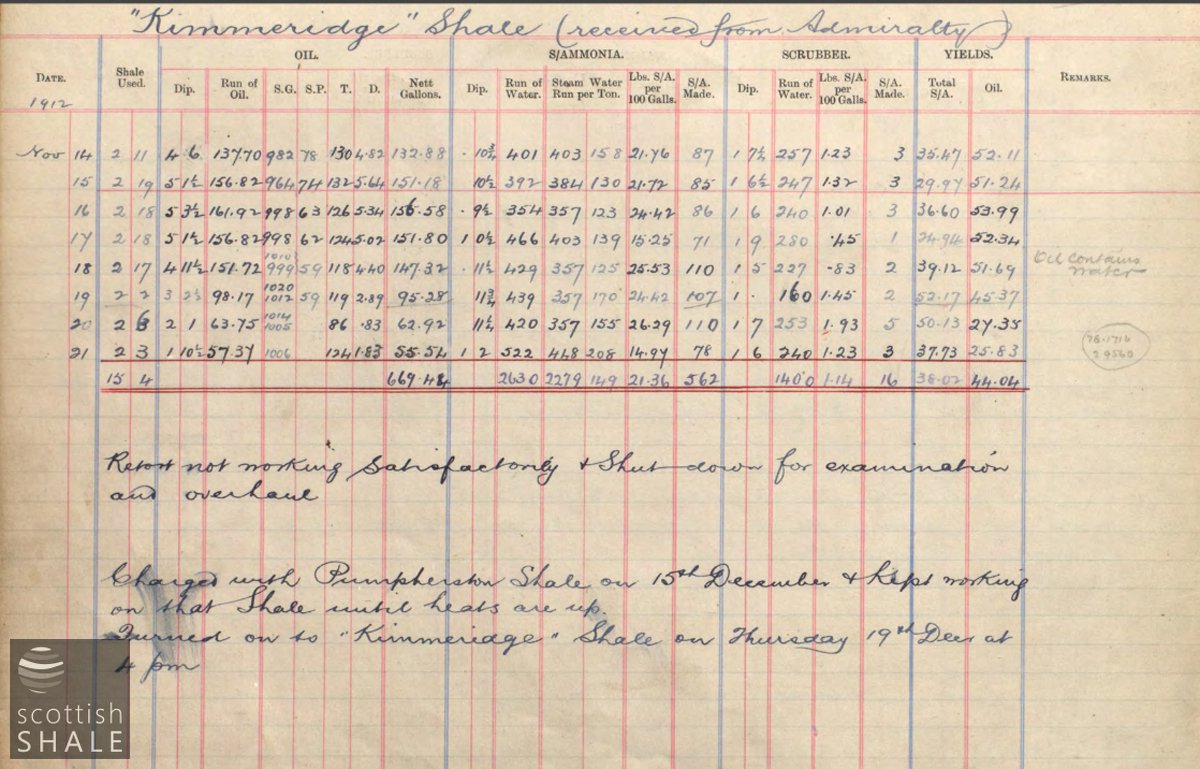 "Kimmeridge" Shale (received from Admiralty)
OIL. S/AMMONIA. SCRUBBER. YIELDS.
DATE. Shale Used. Dip. Run of Oil. S.G. S.P. T. D. Nett Gallons. Dip. Run of Water. Steam Run Water per Ton. Lbs. S/A. per 100 Galls. S/A. Made. Dip. Run of Water. Lbs. S/A. per 100 Galls. S/A. Made. Total S/A. Oil. REMARKS.
1912
Nov 14 2 11 4 6 137.70 982 78 130 4.82 132.88 . 10¾ 401 403 158 21.76 87 1 7½ 257 1.23 3 35.47 52.11
15 2 19 5 1½ 156.82 964 74 132 5.64 151.18 10½ 392 384 130 21.72 85 1 6½ 247 1.32 3 29.97 51.24
16 2 18 5 3½ 161.92 998 63 126 5.34 156.58 . 9½ 354 357 123 24.42 86 1 6 240 1.01 3 36.60 53.99
17 2 18 5 1½ 156.82 998 62 124 5.02 151.80 1 0½ 466 403 139 15.25 71 1 9 280 .45 1 24.94 52.34
18 2 17 4 11½ 151.72 1010 999 59 118 4.40 147.32 . 11½ 429 357 125 25.53 110 1 5 227 .83 2 39.12 51.69 Oil contains water
19 2 2 3 2½ 98.17 1020 1012 59 119 2.89 95.28 11¾ 439 357 170 24.42 107 1 . 160 1.45 2 52.17 45.37
20 2 6 2 1 63.75 1014 1005 86 .83 62.92 11½ 420 357 155 26.29 110 1 7 253 1.93 5 50.13 27.35
21 2 3 1 10½ 57.37 1006 124 1.83 55.54 1 2 522 448 208 14.97 78 1 6 240 1.23 3 37.73 25.83
78.1716
2 9560
15 4 669.48 2630 2279 149 21.36 562 1400 1.14 16 38.02 44.04
Retort not working satisfactorily & Shut down for examination
and overhaul
Charged with Pumpherston Shale on 15th December & kept working
on that Shale until heats are up.
Turned on to "Kimmeridge" Shale on Thursday 19th Decr at
4 pm
scottish
SHALE